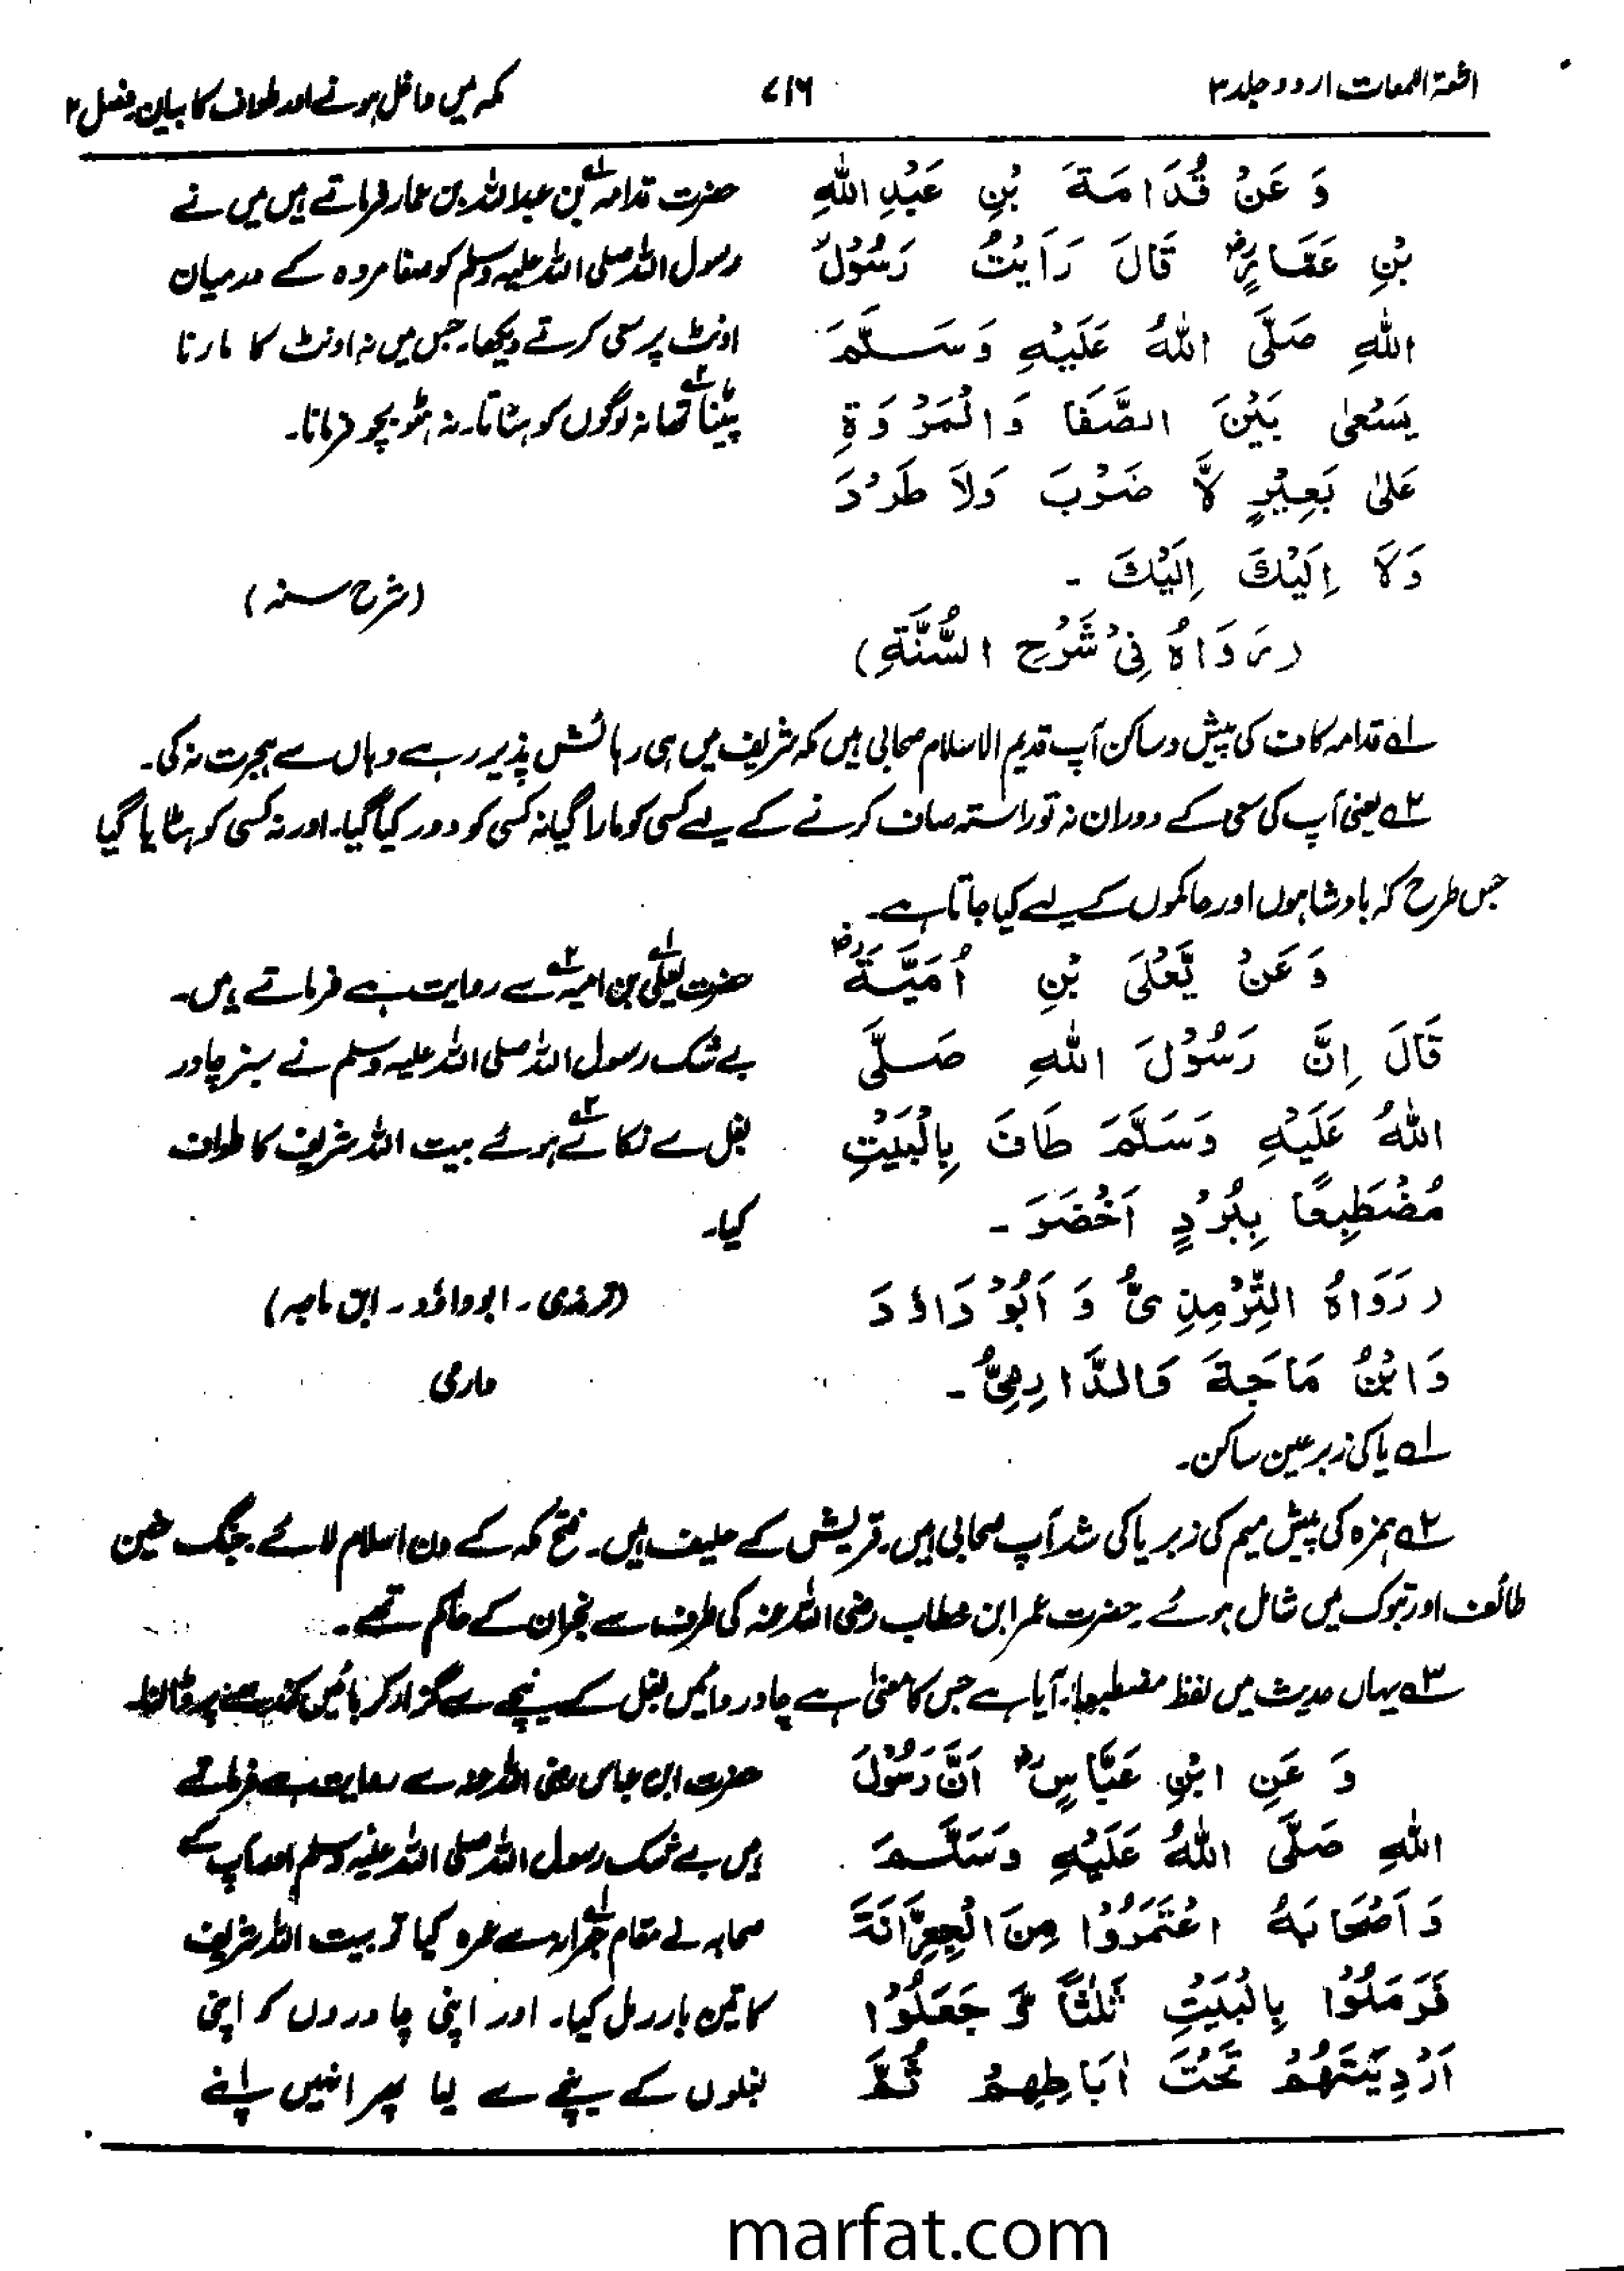 اشعۃ اللمعات اردو جلد ۳
۷۱۶
مکہ میں داخل ہونے اور طواف کا بیان فصل ۲
وَ عَنْ قُدَامَةَ بْنِ عَبْدِ اللّٰهِ
بْنِ عَمَّارٍؓ قَالَ رَاَيْتُ رَسُوْلَ
اللّٰهِ صَلَّى اللّٰهُ عَلَيْهِ وَسَلَّمَ
يَسْعٰى بَيْنَ الصَّفَا وَالْمَرْوَةِ
عَلٰى بَعِيْرٍ لَّا ضَرْبَ وَلَا طَرْدَ
وَلَا اِلَيْكَ اِلَيْكَ ۔
(رَوَاهُ فِيْ شَرْحِ السُّنَّةِ)
حضرت قدامہ۱؎ بن عبداللہ بن عمار فرماتے ہیں میں نے
رسول اللہ صلی اللہ علیہ وسلم کو صفا مروہ کے درمیان
اونٹ پر سعی کرتے دیکھا۔ جس میں نہ اونٹ کا مارنا
پیٹنا۲؎ تھا نہ لوگوں کو ہٹانا۔ نہ ہٹو بچو فرمانا۔
(شرح سنہ)
۱؎ قدامہ کاف کی پیش و ساکن آپ قدیم الاسلام صحابی ہیں مکہ شریف میں ہی رہائش پذیر رہے وہاں سے ہجرت نہ کی۔
۲؎ یعنی آپ کی سعی کے دوران نہ تو راستہ صاف کرنے کے لیے کسی کو مارا گیا نہ کسی کو دور کیا گیا۔ اور نہ کسی کو ہٹایا گیا
جس طرح کہ بادشاہوں اور حاکموں کے لیے کیا جاتا ہے۔
وَ عَنْ يَّعْلَى بْنِ اُمَيَّةَؓ
قَالَ اِنَّ رَسُوْلَ اللّٰهِ صَلَّى
اللّٰهُ عَلَيْهِ وَسَلَّمَ طَافَ بِالْبَيْتِ
مُضْطَبِعًا بِبُرْدٍ اَخْضَرَ ۔
(رَوَاهُ التِّرْمِذِيُّ وَ اَبُوْ دَاوٗدَ
وَابْنُ مَاجَةَ وَالدَّارِمِيُّ ۔
حضرت یعلیٰ۱؎ بن امیہ۲؎ سے روایت ہے فرماتے ہیں۔
بے شک رسول اللہ صلی اللہ علیہ وسلم نے سبز چادر
بغل سے نکالے۳؎ ہوئے بیت اللہ شریف کا طواف
کیا۔
(ترمذی۔ ابوداؤد۔ ابن ماجہ)
دارمی
۱؎ یا کی زبر عین ساکن۔
۲؎ ہمزہ کی پیش میم کی زبر یا کی شد آپ صحابی ہیں۔ قریش کے حلیف ہیں۔ فتح مکہ کے دن اسلام لائے۔ جنگ حنین
طائف اور تبوک میں شامل ہوئے۔ حضرت عمر ابن خطاب رضی اللہ عنہ کی طرف سے نجران کے حاکم تھے۔
۳؎ یہاں حدیث میں لفظ مضطبعا آیا ہے جس کا معنیٰ ہے چادر دائیں بغل کے نیچے سے گزار کر بائیں کندھے پر ڈالنا۔
وَ عَنِ ابْنِ عَبَّاسٍؓ اَنَّ رَسُوْلَ
اللّٰهِ صَلَّى اللّٰهُ عَلَيْهِ وَسَلَّمَ
وَ اَصْحَابَهُ اعْتَمَرُوْا مِنَ الْجِعِرَّانَةَ
فَرَمَلُوْا بِالْبَيْتِ ثَلٰثًا وَّ جَعَلُوْا
اَرْدِيَتَهُمْ تَحْتَ اٰبَاطِهِمْ ثُمَّ
حضرت ابن عباس رضی اللہ عنہ سے روایت ہے فرماتے
ہیں بے شک رسول اللہ صلی اللہ علیہ وسلم اور آپ کے
صحابہ نے مقام جعرانہ۱؎ سے عمرہ کیا تو بیت اللہ شریف
کا تین بار رمل کیا۔ اور اپنی چادروں کو اپنی
بغلوں کے نیچے سے لیا پھر انہیں اپنے
marfat.com